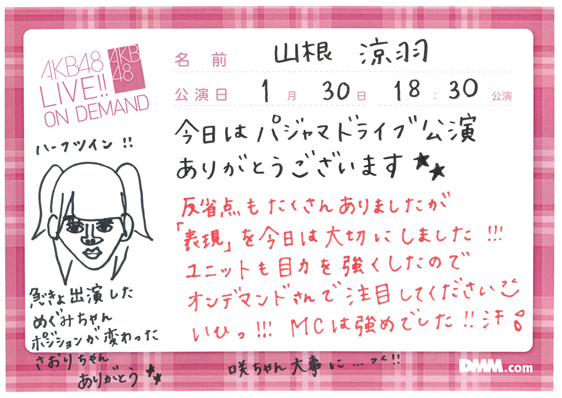 AKB48
LIVE!!
ON DEMAND
AKB
48
名前 山根 涼羽
公演日 1月30日 18:30公演
今日はパジャマドライブ公演
ありがとうございます
反省点もたくさんありましたが
「表現」を今日は大切にしました!!!
ユニットも目力を強くしたので
オンデマンドさんで注目してください
いひっ!!! MCは強めでした!!汗
ハーフツイン!!
急きょ出演した
めぐみちゃん
ポジションが変わった
さおりちゃん
ありがとう
咲ちゃん大事に…っ!!
DMM.com